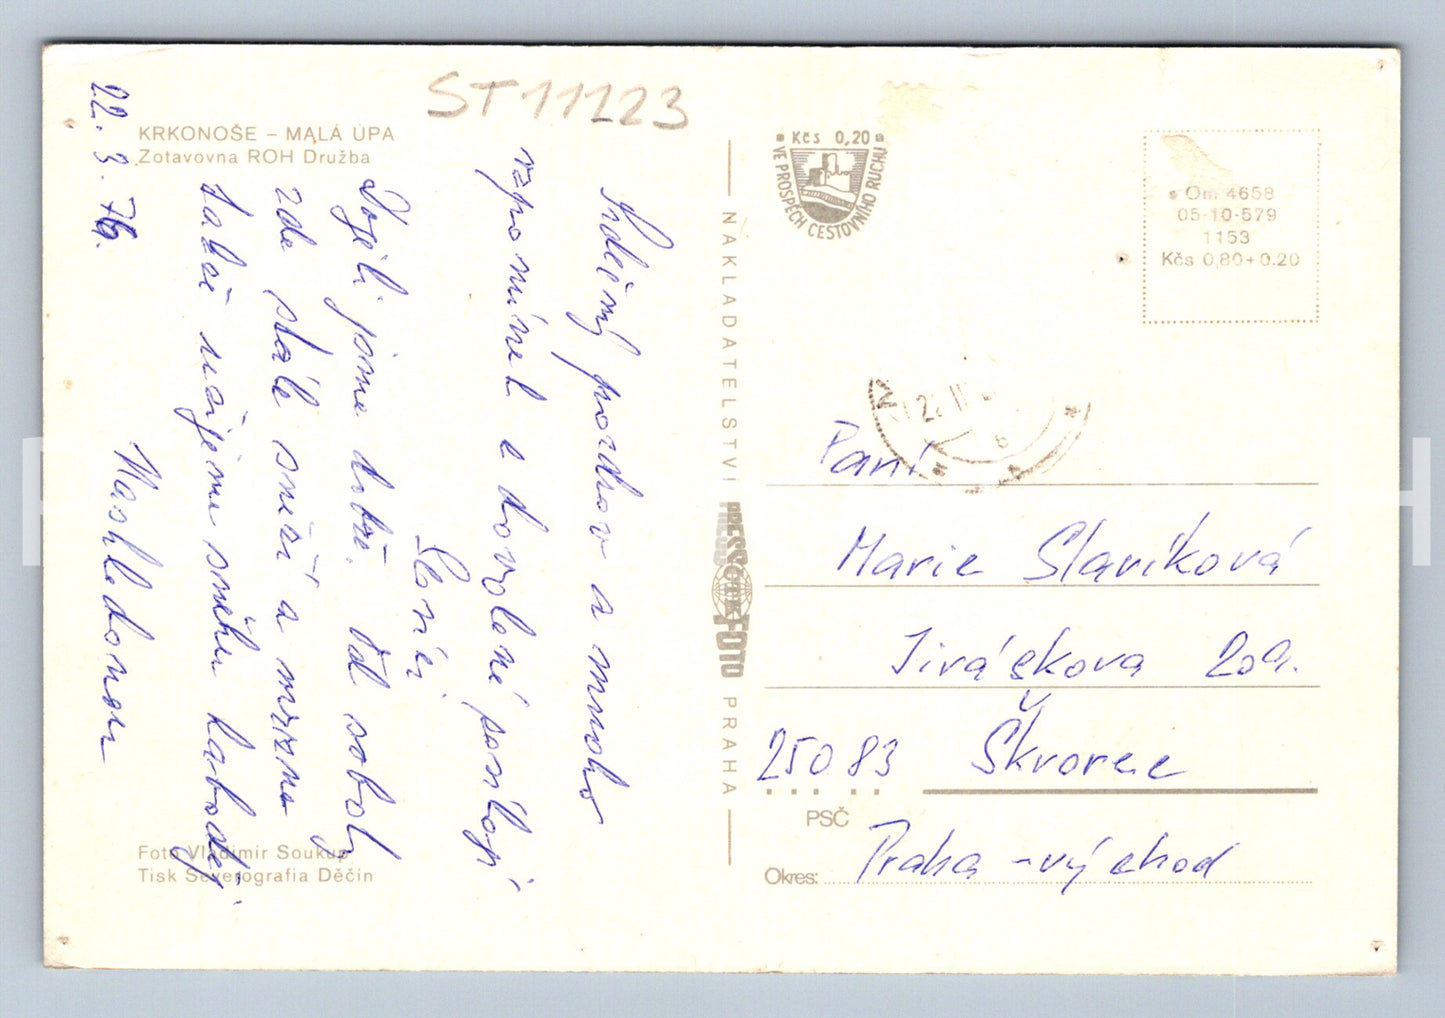 ST 11123
KRKONOŠE – MALÁ ÚPA
Zotavovna ROH Družba
22. 3. 76.
Srdečný pozdrav a mnoho
vzpomínek z dovolené posílají
Dojeli jsme dobře. Od soboty
zde stále sněží a mrzne
takže užijeme sněhu
Nashledanou
Foto Vladimír Soukup
Tisk Severografia Děčín
NAKLADATELSTVÍ PRESSFOTO PRAHA
Kčs 0,20
VE PROSPĚCH CESTOVNÍHO RUCHU
Om 4658
05-10-579
1153
Kčs 0,80+0.20
Paní
Marie Slavíková
Jiráskova 209.
250 83 Škvorec
PSČ
Okres: Praha -východ